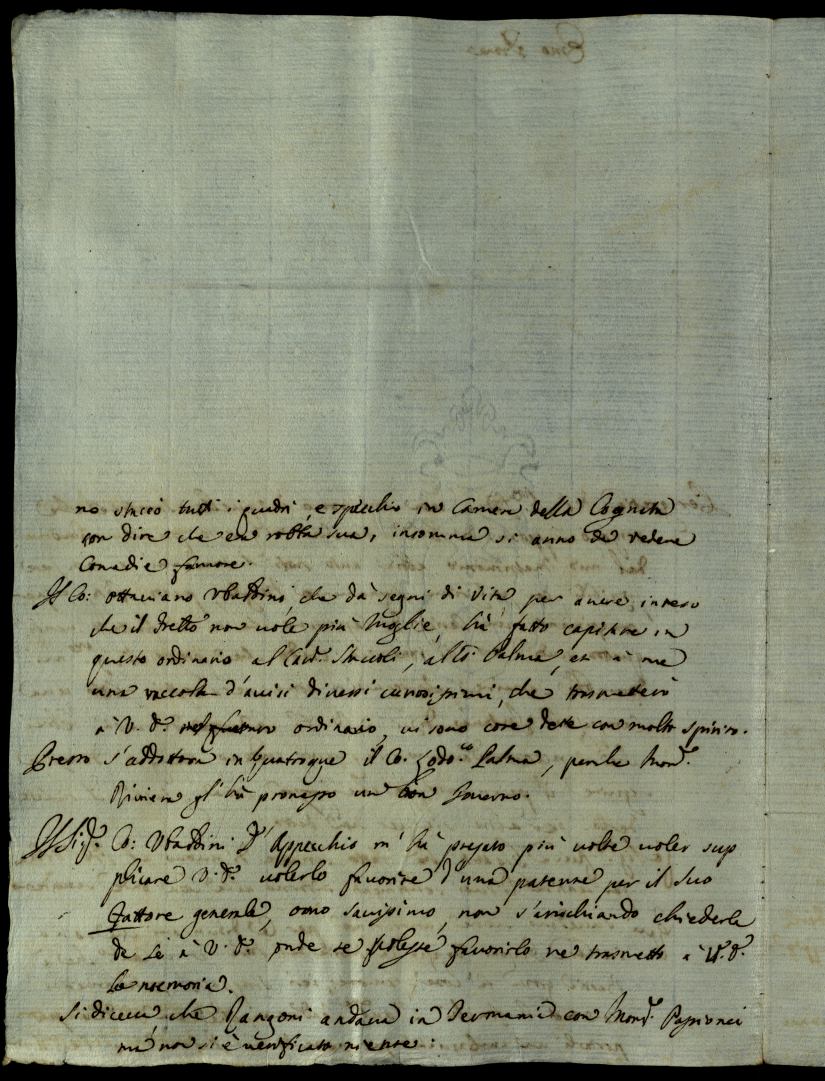 no staccò tutti i quadri, e specchio in Camera della Cognata
con dire che era robba sua, insomma si anno da vedere
Comedie famose.
Il Co: Ottaviano Ubaldini, che dà segni di vita per avere inteso
che il detto non vole più moglie, hà fatto capitare in
questo ordinario al Cav.r Staccoli, al Co: Palma, et à me
una raccolta d'avisi diversi curiosissimi, che trasmetterò
à V. S. ordinario, vi sono cose dette con molto spirito.
Presto s'addottora in Utroque il Co. Lodo.co Palma, perche Mons.r
Riviera gl'hà promesso un bon Governo.
Il Sig.r Co: Ubaldini d'Appecchio m'hà pregato più volte voler sup
plicare V. S. volerlo favorire d'una patente per il suo
Fattore generale, omo savissimo, non s'arischiando chiederla
da sè à V. S. onde se potesse favorirlo ne trasmetto à V. S.
la memoria.
Si diceva che Zangoni andava in Germania con Mons.r Passionei
mà non si è verificato niente: